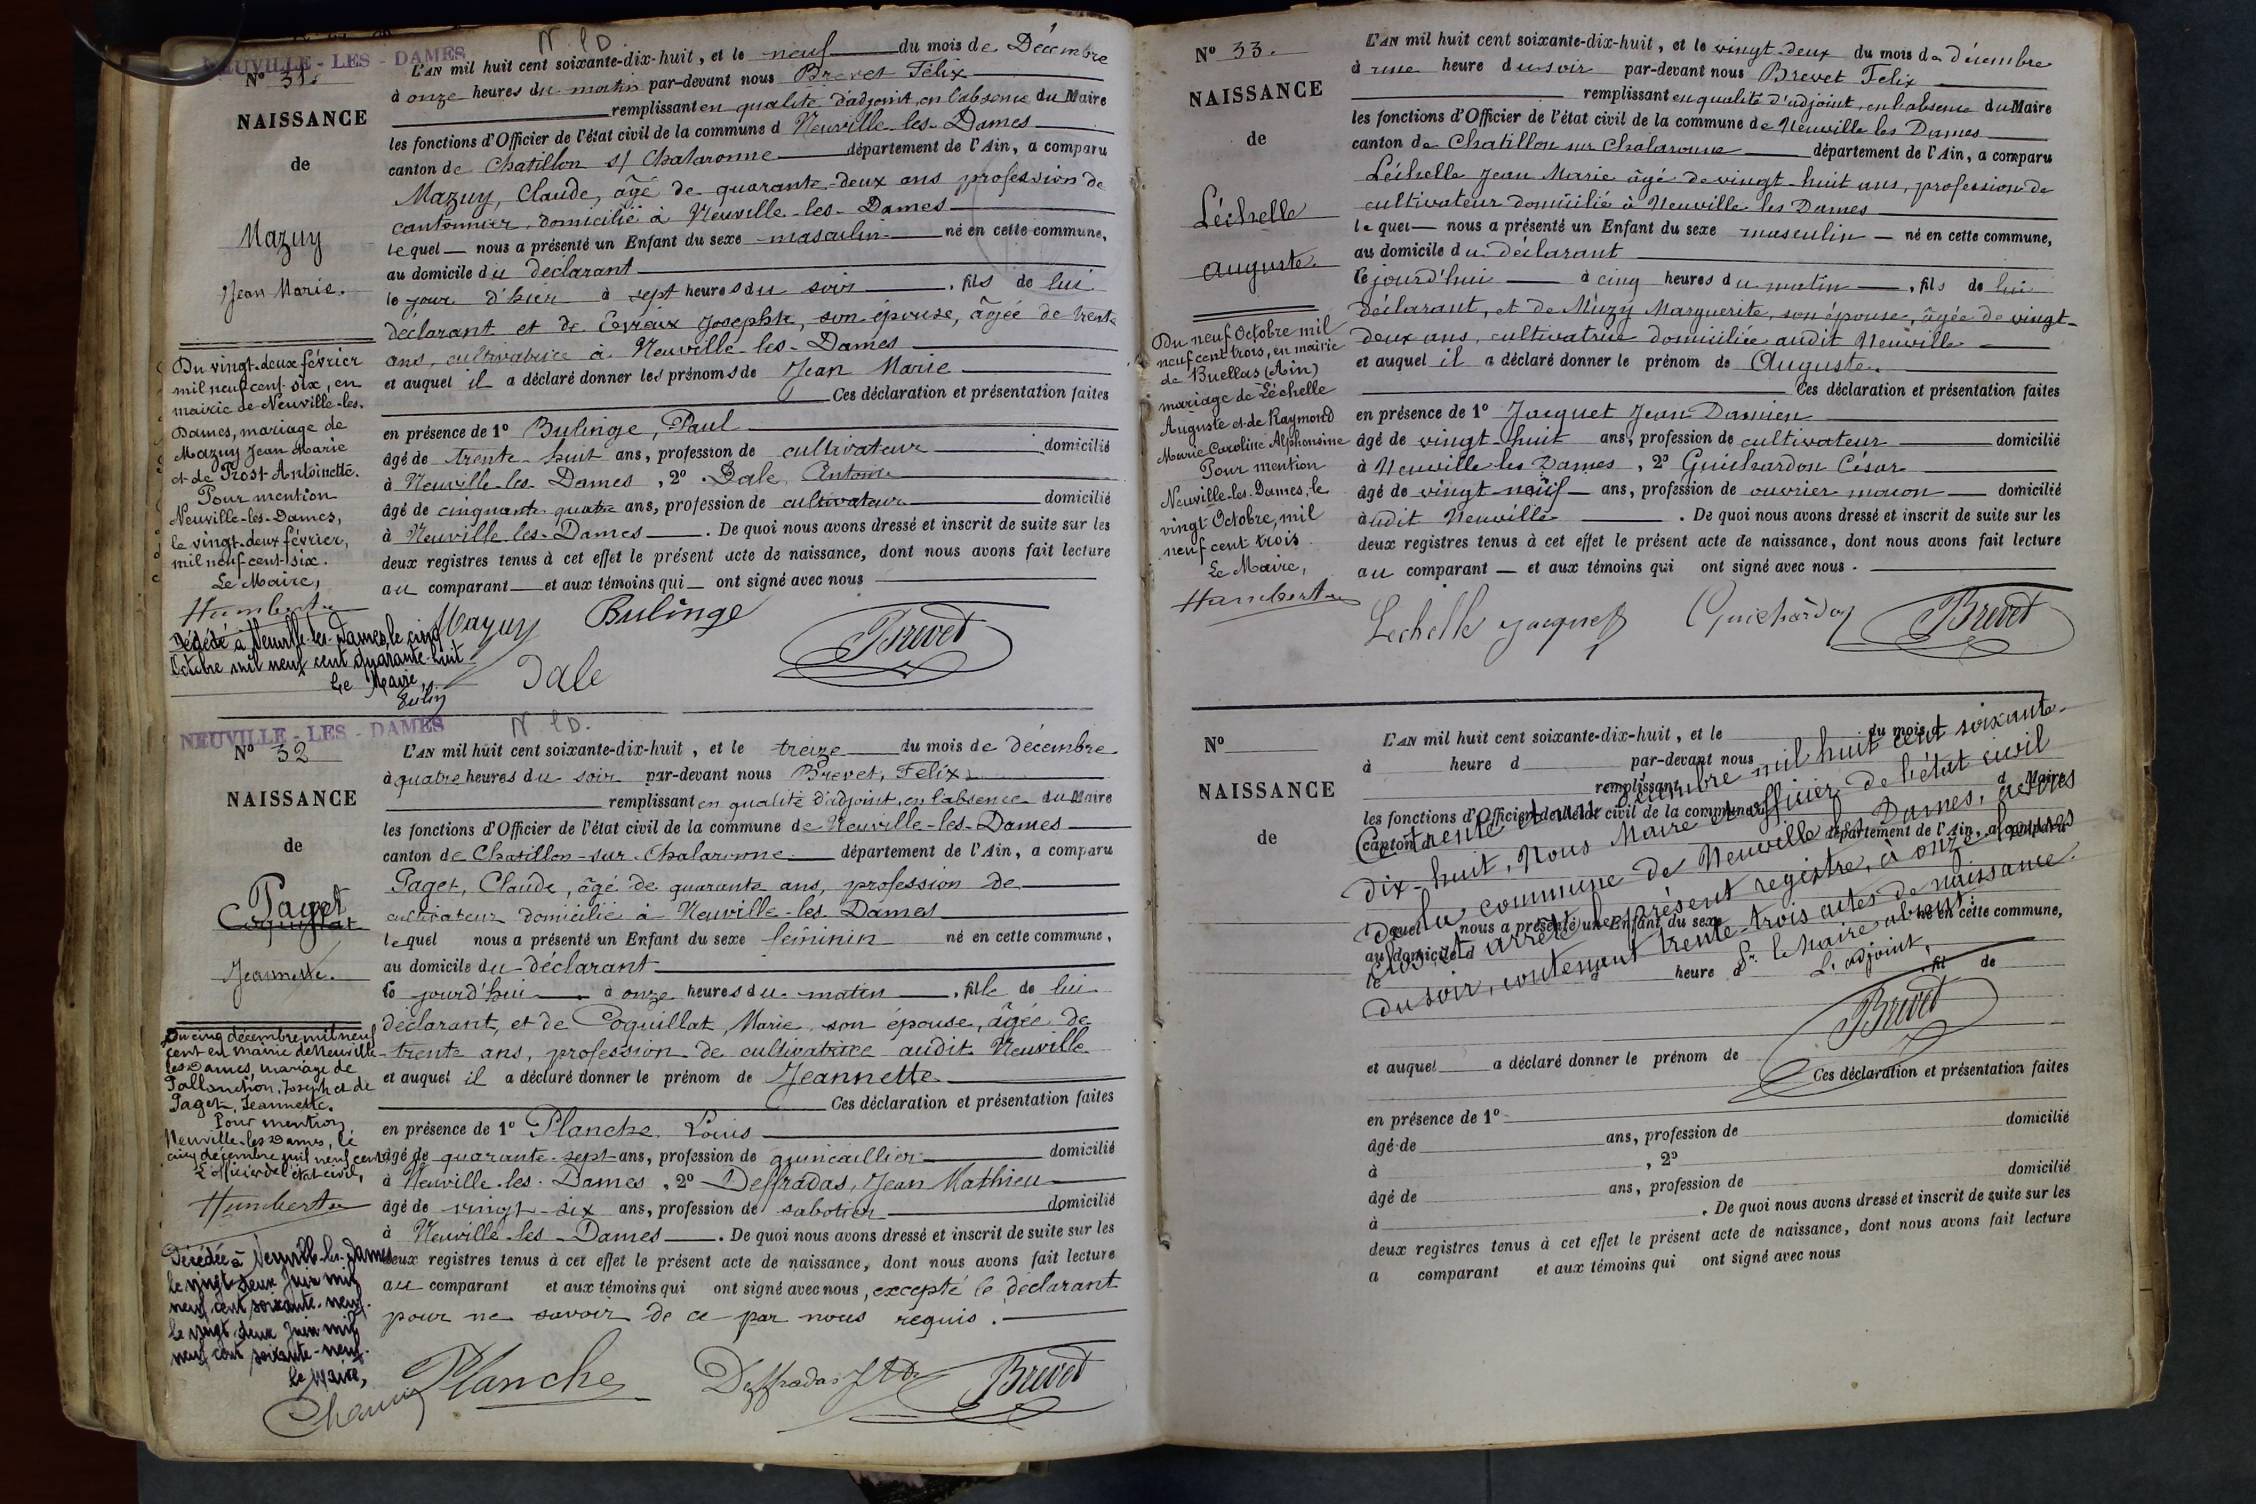 NEUVILLE - LES - DAMES
N lD
N° 31.
NAISSANCE
de
Mazuy
Jean Marie.
Du vingt-deux février
mil neuf cent six, en
mairie de Neuville-les-
Dames, mariage de
Mazuy Jean Marie
et de Prost Antoinette.
Pour mention
Neuville-les-Dames,
le vingt-deux février,
mil neuf-cent-six.
Le Maire,
Humbert
Décédé à Neuville-les-Dames, le cinq
Octobre mil neuf cent quarante-huit
Le Maire,
L'AN mil huit cent soixante-dix-huit, et le neuf du mois de Décembre
à onze heures du matin par-devant nous Brevet Félix
remplissant en qualité d'adjoint, en l'absence du Maire
les fonctions d'Officier de l'état civil de la commune d Neuville-les-Dames
canton de Chatillon s/ Chalaronne département de l'Ain, a comparu
Mazuy, Claude, âgé de quarante-deux ans profession de
cantonnier, domicilié à Neuville-les-Dames
lequel nous a présenté un Enfant du sexe masculin né en cette commune,
au domicile du déclarant
le jour d'hier à sept heures du soir, fils de lui
déclarant et de Josephte, son épouse, âgée de trente
ans, cultivatrice à Neuville-les-Dames
et auquel il a déclaré donner les prénoms de Jean Marie
Ces déclaration et présentation faites
en présence de 1° Bulinge, Paul
âgé de trente-huit ans, profession de cultivateur domicilié
à Neuville-les-Dames, 2° Dale, Antoine
âgé de cinquante-quatre ans, profession de cultivateur domicilié
à Neuville-les-Dames. De quoi nous avons dressé et inscrit de suite sur les
deux registres tenus à cet effet le présent acte de naissance, dont nous avons fait lecture
au comparant et aux témoins qui ont signé avec nous
Mazuy Bulinge Brevet
Dale
NEUVILLE - LES - DAMES
N lD.
N° 32
NAISSANCE
de
Paget
Coquillat
Jeannette.
Du cinq décembre mil neuf
cent en mairie de Neuville-
les-Dames, mariage de
Joseph et de
Paget, Jeannette.
Pour mention
Neuville-les-Dames, le
cinq décembre mil neuf cent
L'officier de l'état civil,
Humbert
Décédée à Neuville-les-Dames
le vingt-deux Juin mil
neuf cent soixante-neuf.
le vingt-deux Juin mil
neuf cent soixante-neuf.
le Maire,
L'AN mil huit cent soixante-dix-huit, et le treize du mois de décembre
à quatre heures du soir par-devant nous Brevet, Félix
remplissant en qualité d'adjoint, en l'absence du Maire
les fonctions d'Officier de l'état civil de la commune de Neuville-les-Dames
canton de Chatillon-sur-Chalaronne département de l'Ain, a comparu
Paget, Claude, âgé de quarante ans, profession de
cultivateur domicilié à Neuville-les-Dames
lequel nous a présenté un Enfant du sexe féminin né en cette commune,
au domicile du déclarant
le jourd'hui à onze heures du matin, fille de lui
déclarant, et de Coquillat, Marie, son épouse, âgée de
trente ans, profession de cultivatrice audit Neuville
et auquel il a déclaré donner le prénom de Jeannette
Ces déclaration et présentation faites
en présence de 1° Planche, Louis
âgé de quarante-sept ans, profession de quincaillier domicilié
à Neuville-les-Dames, 2° Deffradas, Jean Mathieu
âgé de vingt-six ans, profession de sabotier domicilié
à Neuville-les-Dames. De quoi nous avons dressé et inscrit de suite sur les
deux registres tenus à cet effet le présent acte de naissance, dont nous avons fait lecture
au comparant et aux témoins qui ont signé avec nous, excepté le déclarant
pour ne savoir de ce par nous requis.
Planche Deffradas Brevet
N° 33.
NAISSANCE
de
Léchelle
Auguste.
Du neuf Octobre mil
neuf cent trois, en mairie
de Buellas (Ain)
mariage de Léchelle
Auguste et de Raymond
Marie Caroline Alphonsine
Pour mention
Neuville-les-Dames, le
vingt Octobre, mil
neuf cent trois
Le Maire,
Humbert
L'AN mil huit cent soixante-dix-huit, et le vingt-deux du mois de décembre
à une heure du soir par-devant nous Brevet Felix
remplissant en qualité d'adjoint, en l'absence du Maire
les fonctions d'Officier de l'état civil de la commune de Neuville les Dames
canton de Chatillon sur Chalaronne département de l'Ain, a comparu
Léchelle Jean Marie âgé de vingt-huit ans, profession de
cultivateur domicilié à Neuville les Dames
lequel nous a présenté un Enfant du sexe masculin né en cette commune,
au domicile du déclarant
le jourd'hui à cinq heures du matin, fils de lui
déclarant, et de Muzy Marguerite, son épouse, âgée de vingt-
deux ans, cultivatrice domiciliée audit Neuville
et auquel il a déclaré donner le prénom de Auguste.
Ces déclaration et présentation faites
en présence de 1° Jacquet Jean Damien
âgé de vingt-huit ans, profession de cultivateur domicilié
à Neuville les Dames, 2° Guichardon César
âgé de vingt-neuf ans, profession de ouvrier maçon domicilié
audit Neuville. De quoi nous avons dressé et inscrit de suite sur les
deux registres tenus à cet effet le présent acte de naissance, dont nous avons fait lecture
au comparant et aux témoins qui ont signé avec nous.
Lechelle Jacquet Guichardon Brevet
N°
NAISSANCE
de
L'AN mil huit cent soixante-dix-huit, et le du mois d
à heure d par-devant nous
remplissant d Maire
les fonctions d'Officier de l'état civil de la commune d
canton d département de l'Ain, a comparu
lequel nous a présenté un Enfant du sexe né en cette commune,
au domicile d
le à heure d, fil de
Ce trente et un décembre mil huit cent soixante-
dix-huit, Nous Maire et officier de l'état civil
de la commune de Neuville les Dames, avons
clos et arrêté le présent registre, à onze heures
du soir, contenant trente-trois actes de naissance.
Pr. le Maire absent:
L'adjoint,
Brevet
et auquel a déclaré donner le prénom de
Ces déclaration et présentation faites
en présence de 1° domicilié
âgé de ans, profession de
à, 2° domicilié
âgé de ans, profession de
à. De quoi nous avons dressé et inscrit de suite sur les
deux registres tenus à cet effet le présent acte de naissance, dont nous avons fait lecture
a comparant et aux témoins qui ont signé avec nous